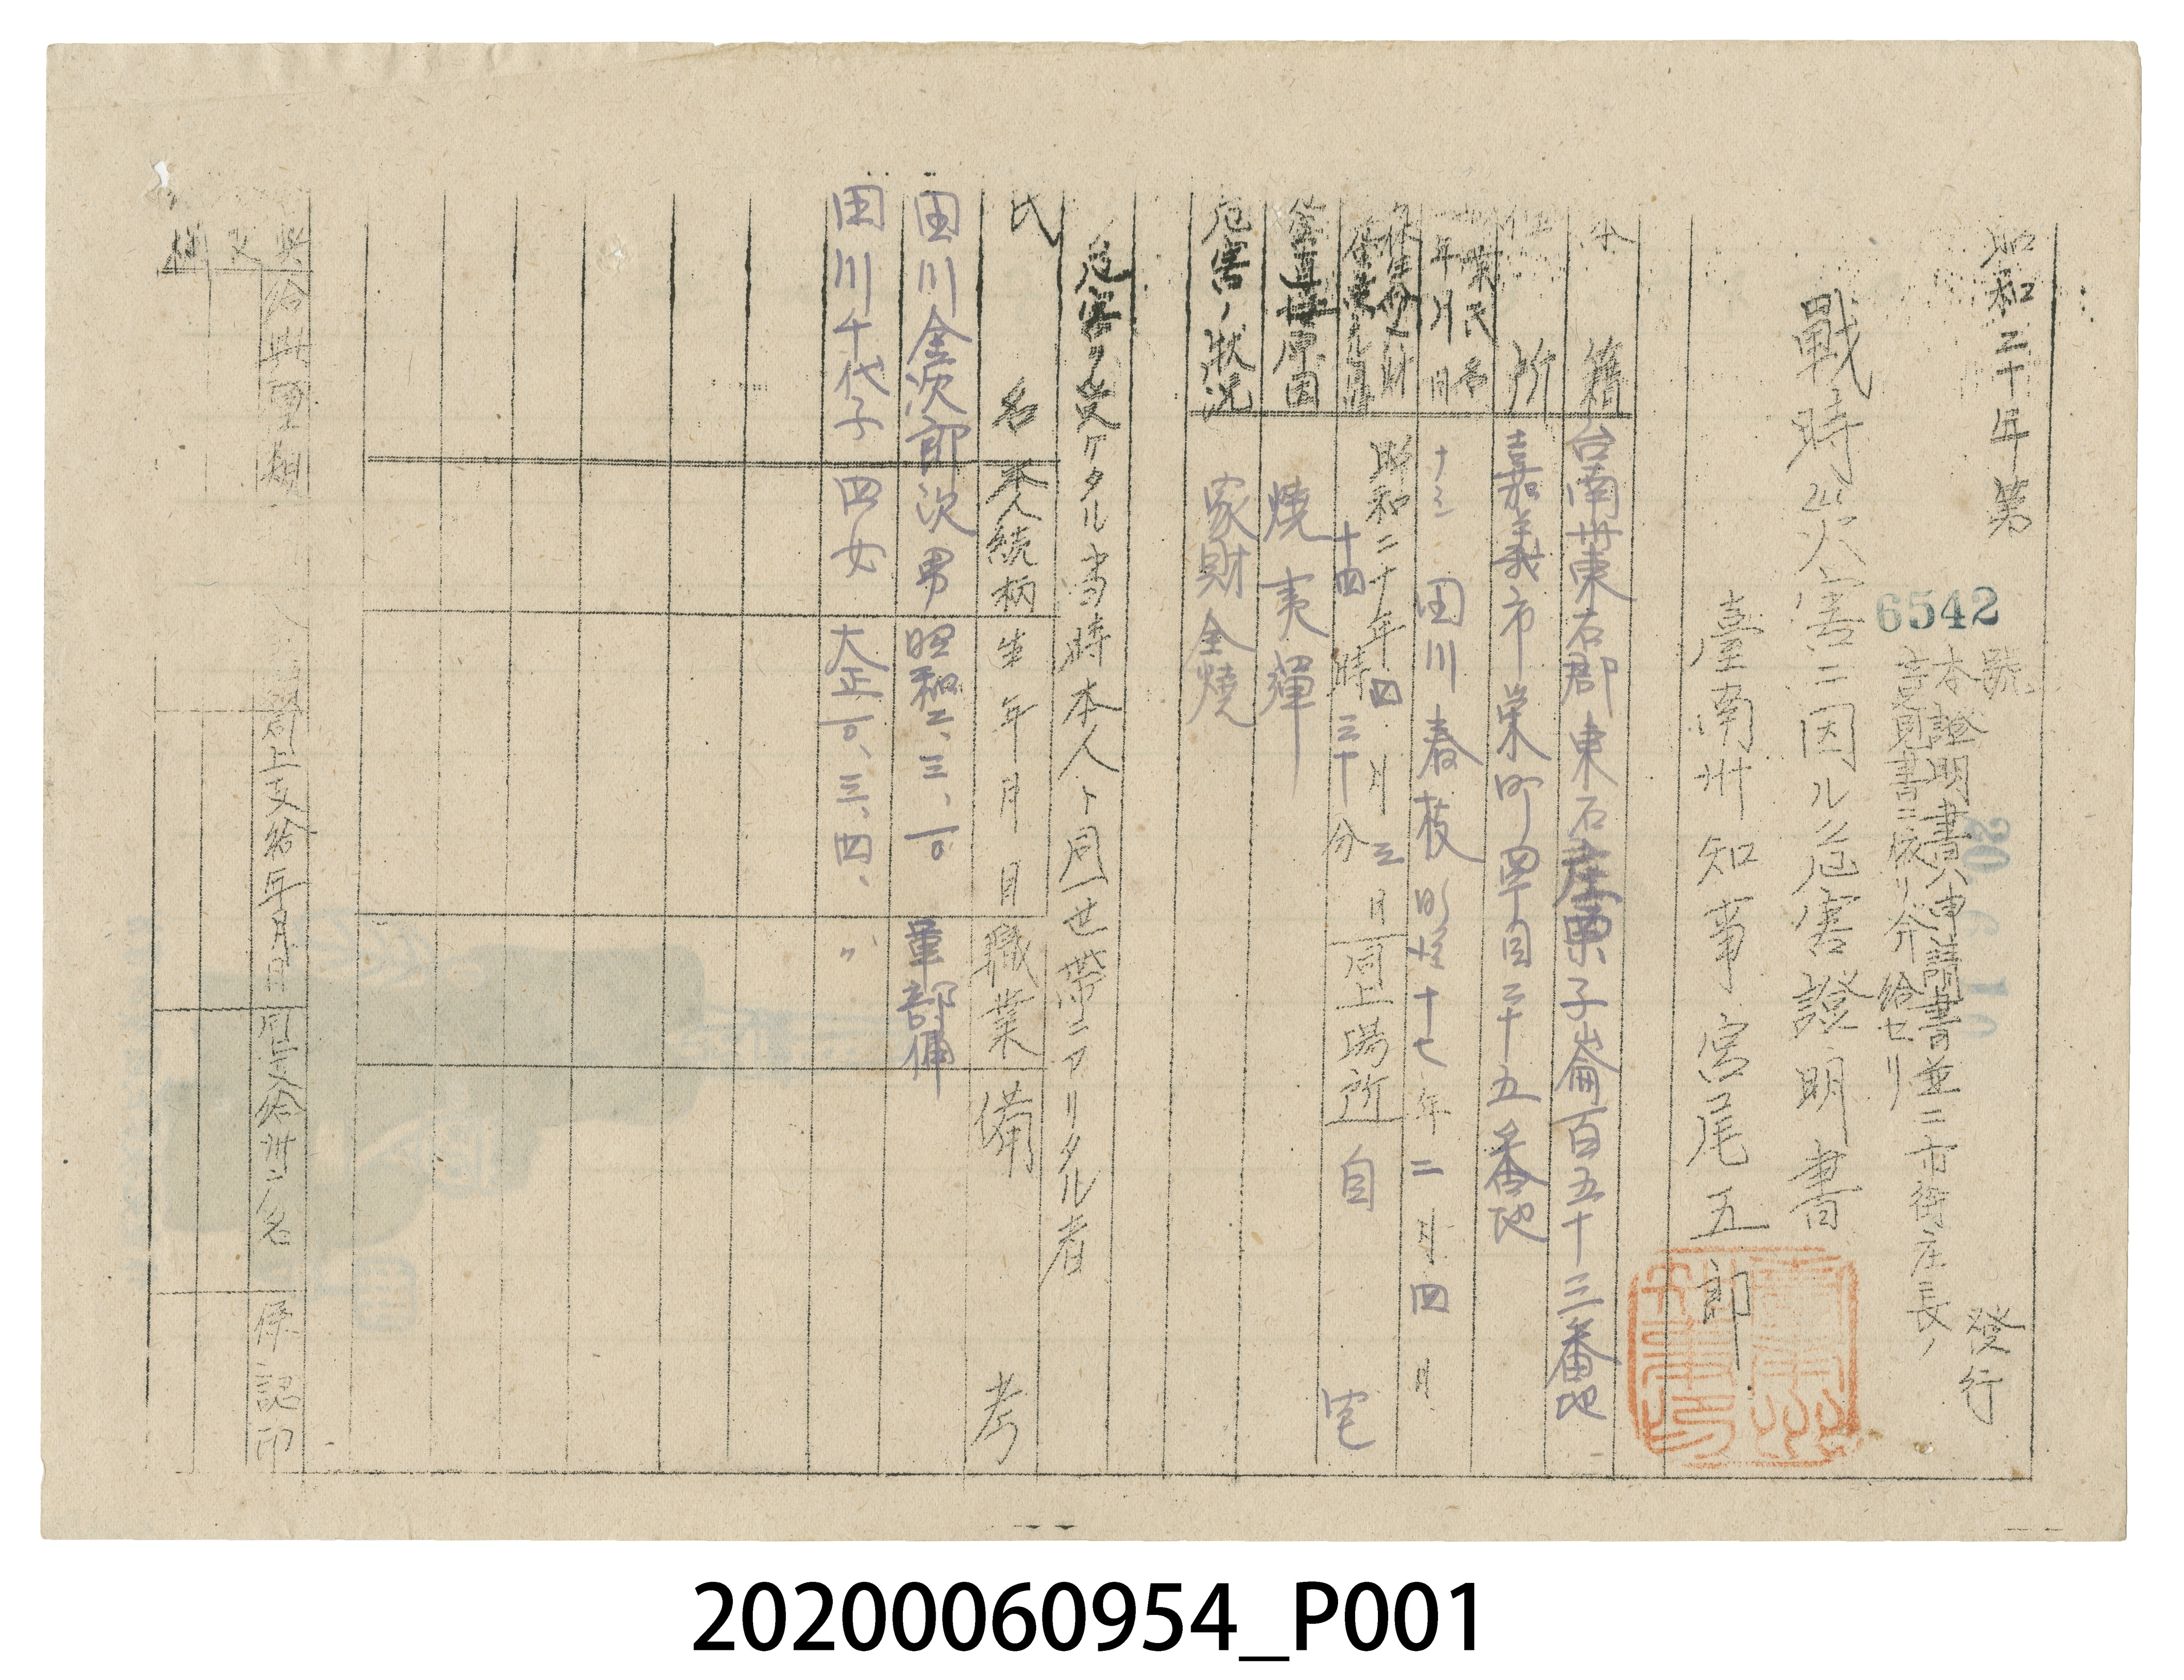 昭和二十年第
6542
號
發行
20. 6. 10
本證明書ハ申請書並ニ市街庄長ノ
意見書ニ依リ介給セリ
戰時災害ニ因ル危害證明書
臺南州知事宮尾五郎
本籍 台南州東石郡東石庄栗子崙百五十三番地
住所 嘉義市栄町四丁目三十五番地
氏名 年月日 田川春枝 明治十七年二月四日
昭和二十年四月三日
十四時三十分
同上場所 自宅
原因 燒夷彈
危害ノ狀況 家財全燒
危害ヲ受ケタル當時本人ト同一世帶ニアリタル者
氏名 本人続柄 生年月日 職業 備考
田川金次郎 次男 昭和二、三、一〇 軍部傭
田川千代子 四女 大正一〇、三、四、 〃
給與
同上支給年月日
係認印
20200060954_P001